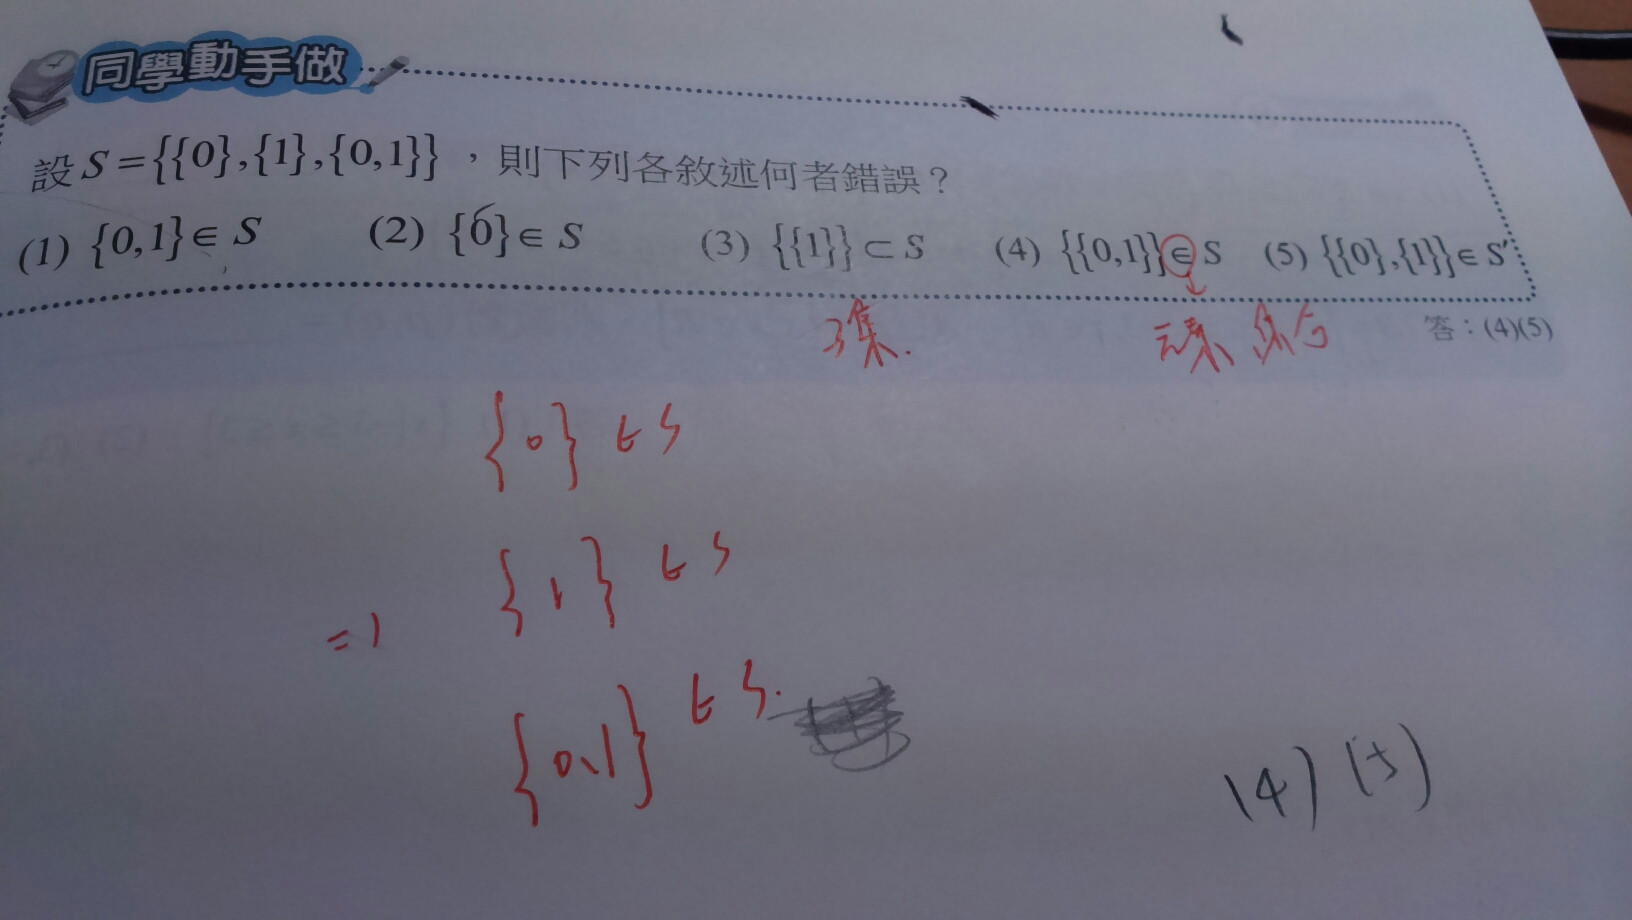 同學動手做
設 S = {{0},{1},{0,1}} ,則下列各敘述何者錯誤?
(1) {0,1}∈ S (2) {0}∈ S (3) {{1}} ⊂ S (4) {{0,1}}∈ S (5) {{0},{1}}∈ S
子集. 元素 集合 答:(4)(5)
{0} ∈ S
{1} ∈ S
{0,1} ∈ S.
(4) (5)